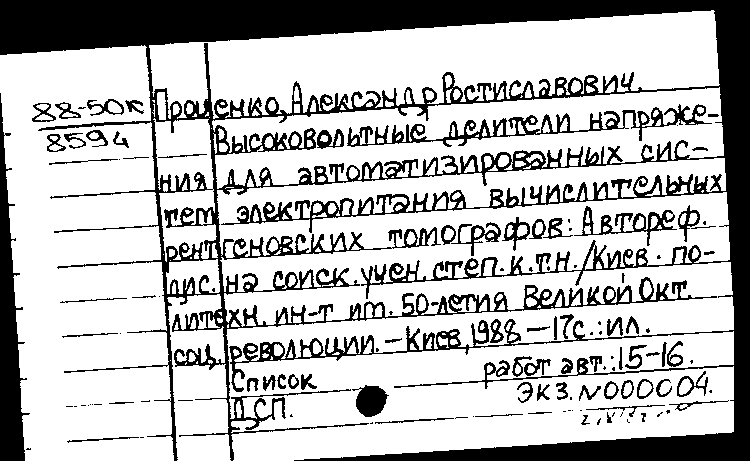 88-50к Проценко, Александр Ростиславович.
8594 Высоковольтные делители напряже-
ния для автоматизированных сис-
тем электропитания вычислительных
рентгеновских томографов: Автореф.
дис. на соиск. учен. степ. к.т.н. / Киев. по-
литехн. ин-т им. 50-летия Великой Окт.
соц. революции. - Киев, 1988 - 17с.: ил.
Список работ авт.: 15-16.
ДСП. ЭКЗ. N000004.